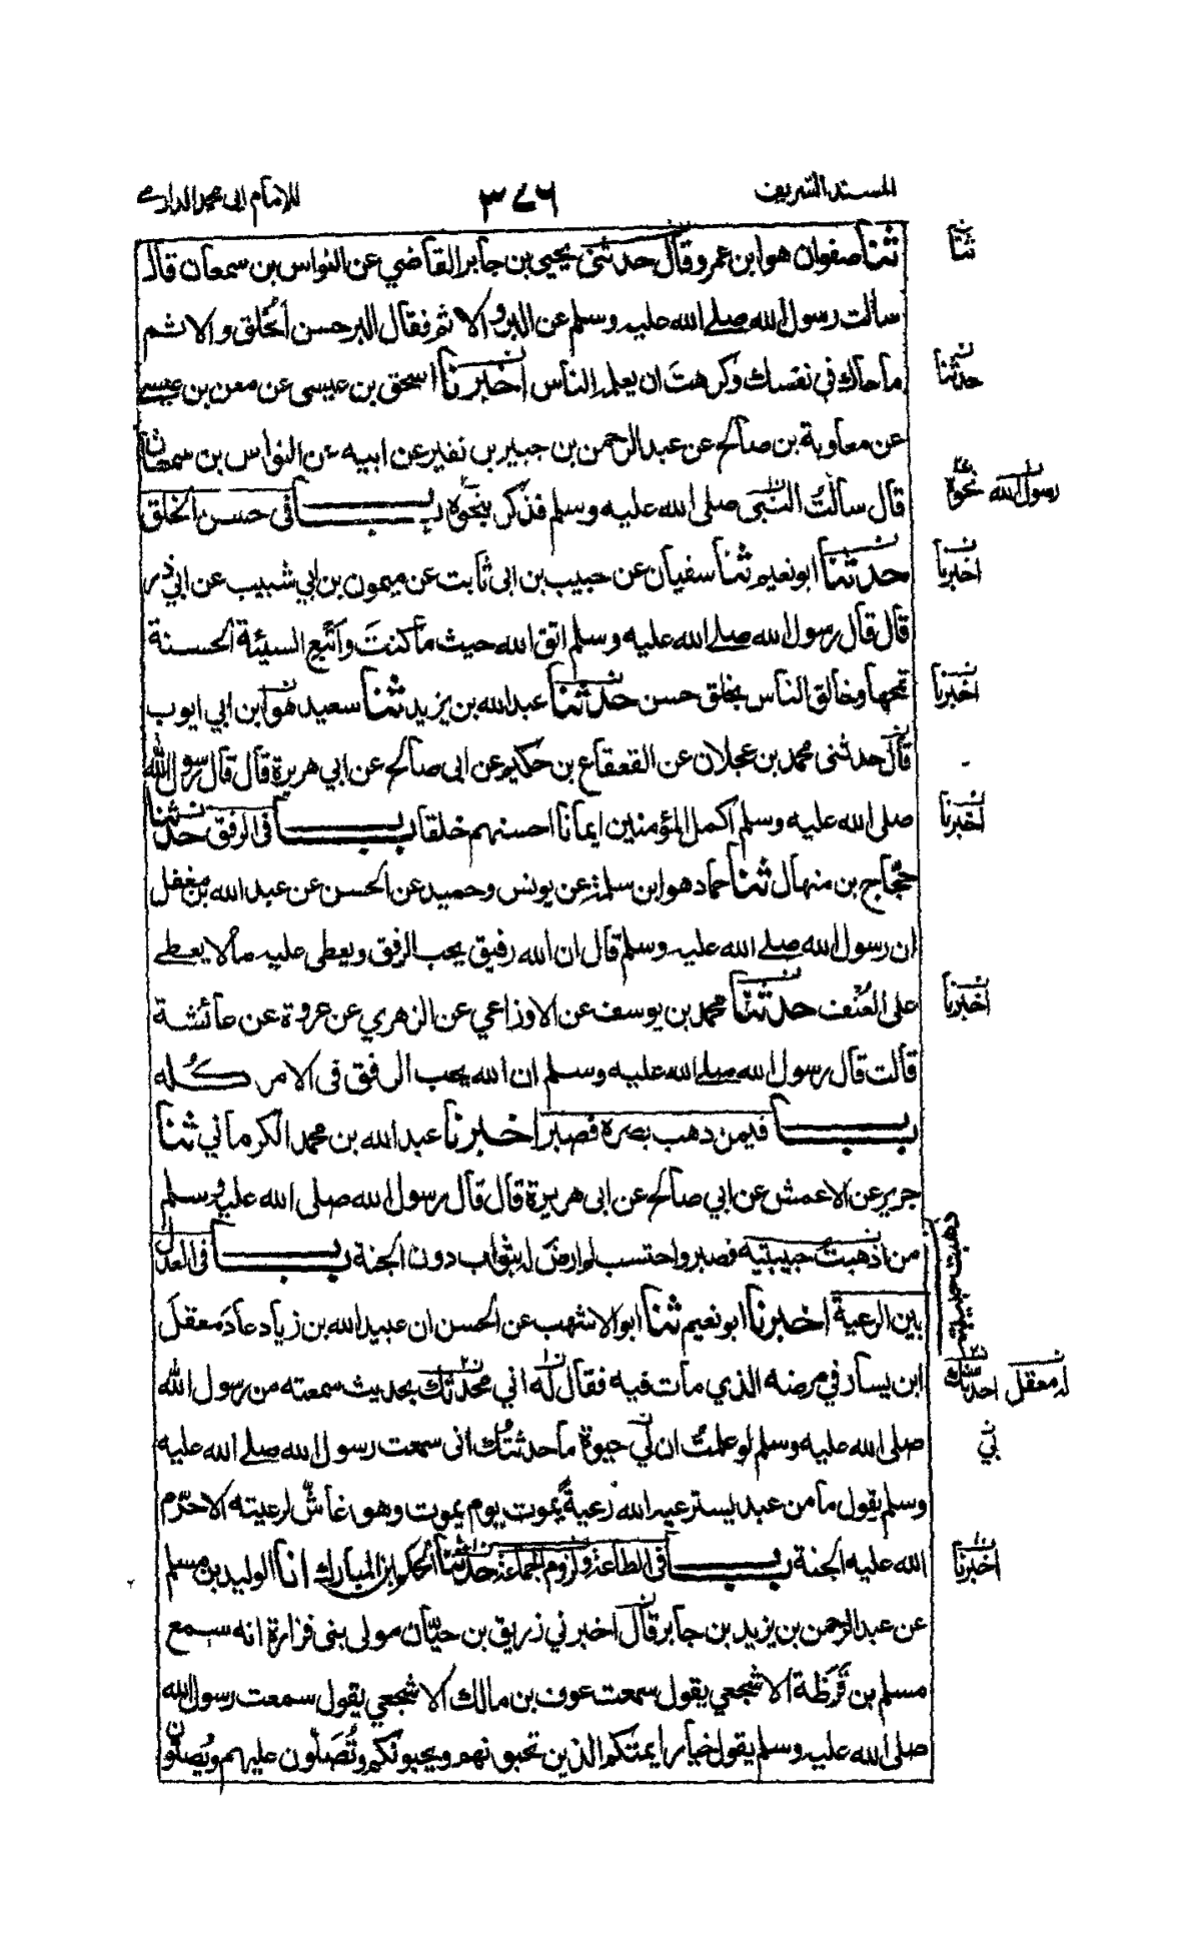 المسند الشريف
٣٧٦
للامام ابى محمد الدارمى
ثنا صفوان هو ابن عمرو قال حدثنى يحيى بن جابر القاضي عن النواس بن سمعان قال
سألت رسول الله صلى الله عليه وسلم عن البر والاثم فقال البر حسن الخلق والاثم
ما حاك في نفسك وكرهت ان يعلمه الناس اخبرنا اسحق بن عيسى عن معن بن عيسى
عن معاوية بن صالح عن عبد الرحمن بن جبير بن نفير عن ابيه عن النواس بن سمعان
قال سألت النبى صلى الله عليه وسلم فذكر بنحوه باب فى حسن الخلق
حدثنا ابو نعيم ثنا سفيان عن حبيب بن ابى ثابت عن ميمون بن ابي شبيب عن ابي ذر
قال قال رسول الله صلى الله عليه وسلم اتق الله حيث ما كنتَ واتبع السيئة الحسنة
تمحها وخالق الناس بخلق حسن حدثنا عبد الله بن يزيد ثنا سعيد هو ابن ابي ايوب
قال حدثنى محمد بن عجلان عن القعقاع بن حكيم عن ابى صالح عن ابي هريرة قال قال رسول الله
صلى الله عليه وسلم اكمل المؤمنين ايمانا احسنهم خلقا باب فى الرفق حدثنا
حجاج بن منهال ثنا حماد هو ابن سلمة عن يونس وحميد عن الحسن عن عبد الله بن مغفل
ان رسول الله صلى الله عليه وسلم قال ان الله رفيق يحب الرفق ويعطى عليه ما لا يعطى
على العُنف حدثنا محمد بن يوسف عن الاوزاعي عن الزهري عن عروة عن عائشة
قالت قال رسول الله صلى الله عليه وسلم ان الله يحب الرفق فى الامر كُله
باب فيمن ذهب بصره فصبر اخبرنا عبد الله بن محمد الكرماني ثنا
جرير عن الاعمش عن ابي صالح عن ابى هريرة قال قال رسول الله صلى الله عليه وسلم
من اذهبت حبيبتيه فصبر واحتسب لم ارض له بثواب دون الجنة باب فى العدل
بين الرعية اخبرنا ابو نعيم ثنا ابو الاشهب عن الحسن ان عبيد الله بن زياد عادَ معقلَ
ابن يسار في مرضه الذي مات فيه فقال له اني محدثك بحديث سمعته من رسول الله
صلى الله عليه وسلم لو علمتُ ان لي حيوة ما حدثتُك انى سمعت رسول الله صلى الله عليه
وسلم يقول ما من عبد يسترعيه الله رعيةً يموت يوم يموت وهو غاشٌّ لرعيته الا حرّم
الله عليه الجنة باب فى الطاعة ولزوم الجماعة حدثنا الحكم بن المبارك انا الوليد بن مسلم
عن عبد الرحمن بن يزيد بن جابر قال اخبرني زريق بن حيّان مولى بنى فزارة انه سمع
مسلم بن قَرَظَة الاشجعي يقول سمعت عوف بن مالك الاشجعي يقول سمعت رسول الله
صلى الله عليه وسلم يقول خيار ايمتكم الذين تحبونهم ويحبونكم وتُصَلّون عليهم ويُصلّون
ثنا
حدثنا
رسول الله نحوه
اخبرنا
اخبرنا
اخبرنا
اخبرنا
له معقل احدثك
ني
اخبرنا